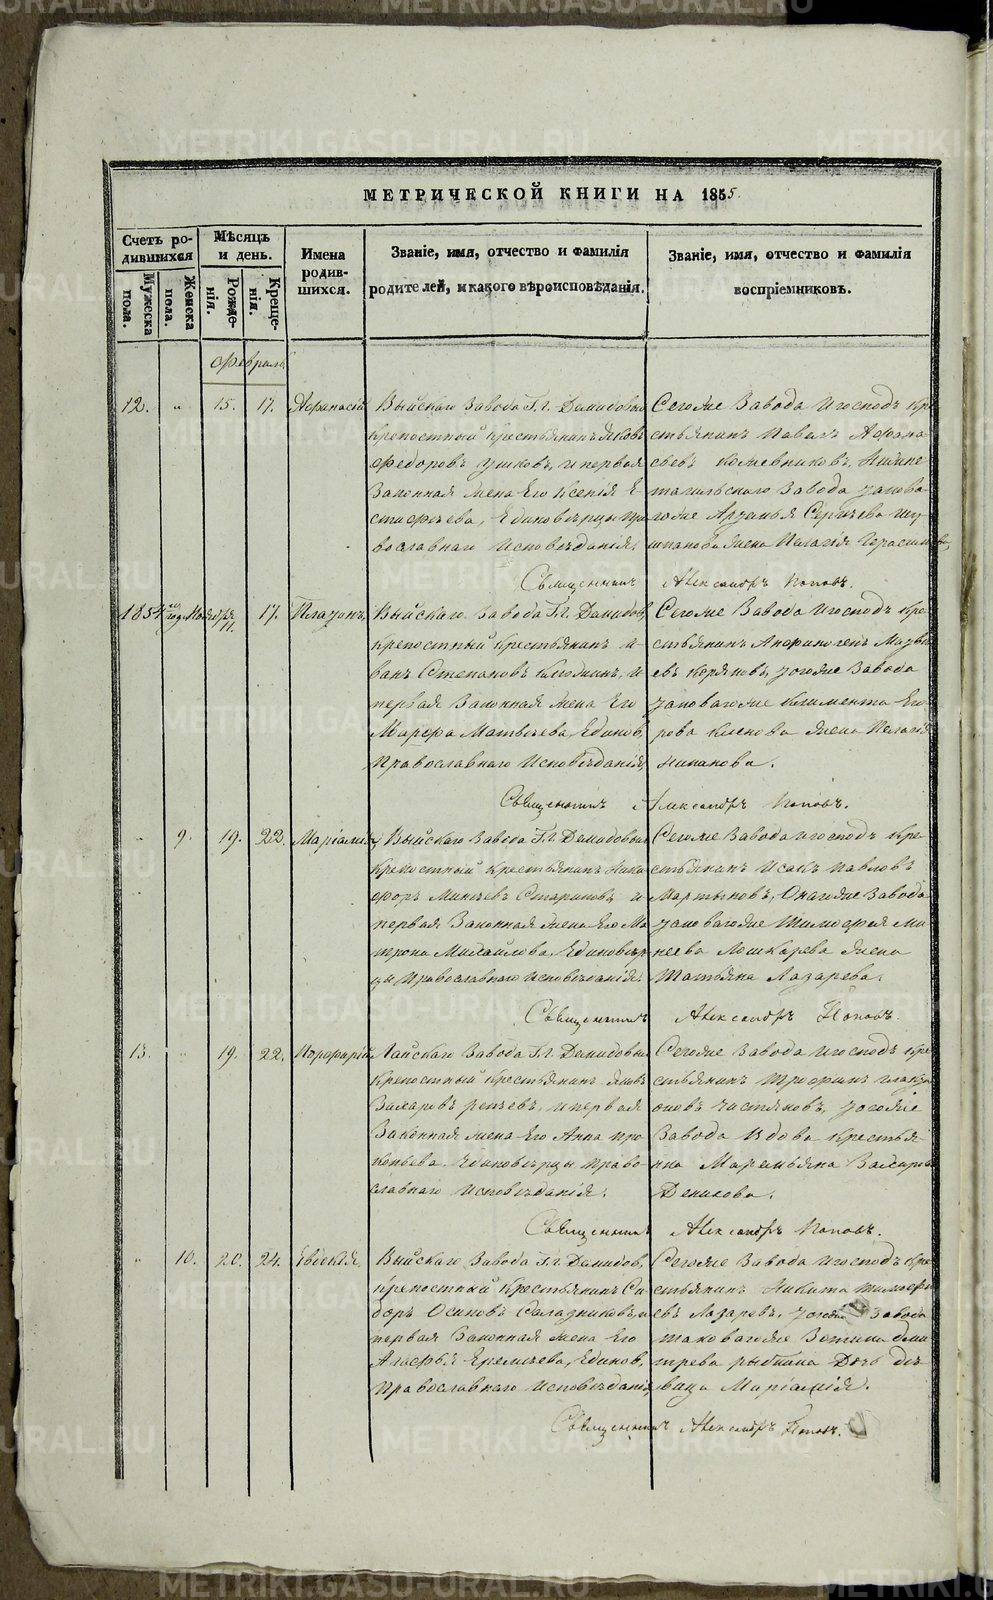 МЕТРИЧЕСКОЙ КНИГИ НА 1855.
Счетъ ро-
дившихся
Мужеска
пола.
Женска
пола.
Мѣсяцъ
и день.
Рожде-
нія.
Креще-
нія.
Имена
родив-
шихся.
Званіе, имя, отчество и фамилія
родителей, и какого вѣроисповѣданія.
Званіе, имя, отчество и фамилія
воспріемниковъ.
Февраль
12. " 15. 17. Афанасій
Выйскаго Завода Г.г. Демидовыхъ
крепостный крестьянинъ Яковъ
Федоровъ Ушковъ, и первая
Законная жена Его Ксенія Е
стифѣева, Единовѣрцы Пра
вославнаго Исповѣданія.
Сегоже Завода и господъ кре
стьянинъ Павелъ Афана
сьевъ Кожевниковъ, Нижне
тагильскаго Завода
жена Пелагія Герасимова,
Священникъ Александръ Поповъ.
1854го года Ноября 11. 17. Платонъ,
Выйскаго Завода Г.г. Демидов,
крепостный крестьянинъ И
ванъ Степановъ и
первая Законная жена Его
Марфа Матвѣева, Единов,
Православнаго Исповѣданія,
Сегоже Завода и господъ кре
стьянинъ Анфиногенъ Матвѣ
евъ Коряковъ, тогоже Завода
таковагоже Климента Его
рова жена Пелагія
Священникъ Александръ Поповъ.
" 9. 19. 22. Маріамія,
Выйскаго Завода Г.г. Демидовыхъ
Крепостный крестьянинъ Ники
форъ Старцовъ и
первая Законная жена Его Ма
трона Михайлова, Единовѣр
цы Православнаго Исповѣданія.
Сегоже Завода и господъ кре
стьянинъ Исакъ Павловъ
Мартыновъ, Онагоже Завода
таковагоже Тимофея Ми
неева Лошкарева жена
Татьяна Лазарева.
Священникъ Александръ Поповъ.
13. " 19. 22. Порфирій,
Лайскаго Завода Г.г. Демидовыхъ
Крепостный крестьянинъ Яковъ
Захаровъ и первая
Законная жена Его Анна Про
копьева. Единовѣрцы Право
славнаго Исповѣданія.
Сегоже Завода и господъ кре
стьянинъ Трофимъ
тогоже
Завода Вдова Крестья
нка Маремьяна Захарова
Деникова.
Священникъ Александръ Поповъ.
" 10. 20. 24. Евдокія.
Выйскаго Завода Г.г. Демидов,
крепостный Крестьянинъ Си
доръ Осиповъ и
первая Законная жена Его
Агафья Еремѣева, Единов,
Православнаго Исповѣданія,
Сегоже Завода и господъ кре
стьянинъ Никита Тимофе
евъ Лазаревъ, тогоже Завода
таковагоже Дми
трева Дочь дѣ
вица Маріамія.
Священникъ Александръ Поповъ.
METRIKI.GASO-URAL.RU